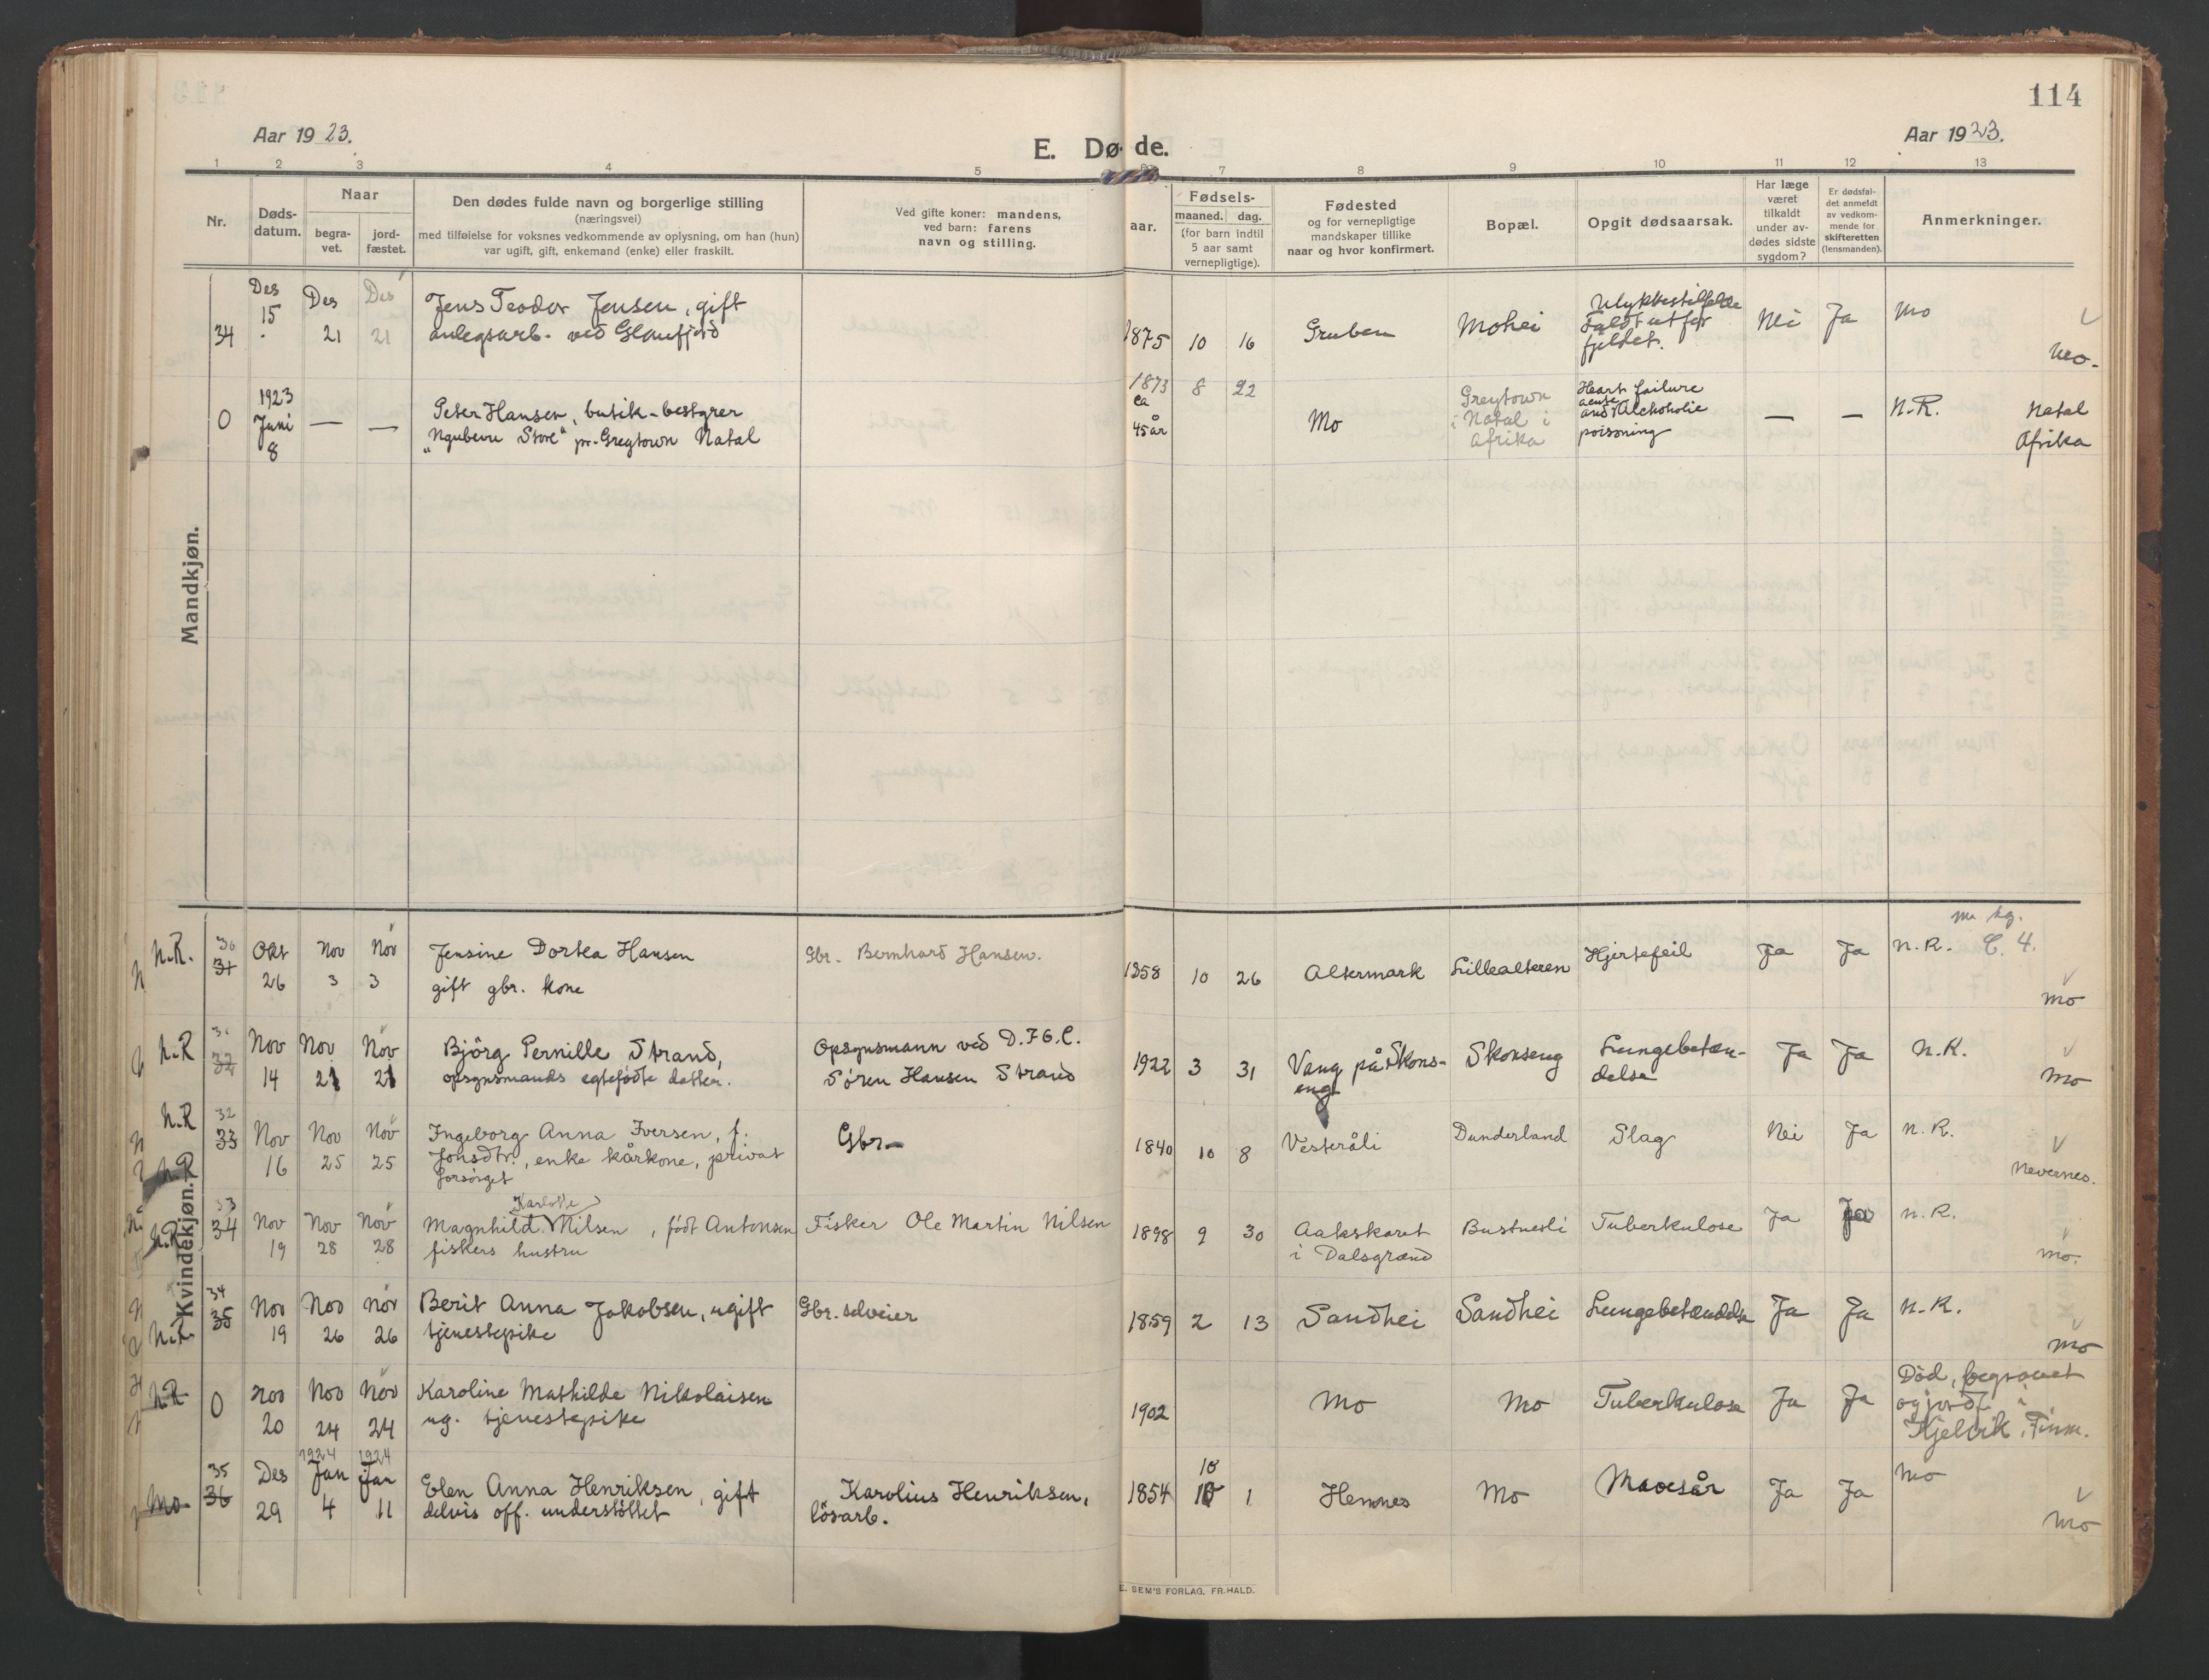 114
Aar 1923.
E. Døde.
Aar 1923.
1 2 3 4 5 7 8 9 10 11 12 13
Nr.
Døds-
datum.
Naar
begra-
vet.
jord-
fæstet.
Den dødes fulde navn og borgerlige stilling
(næringsvei)
med tilføielse for voksnes vedkommende av oplysning, om han (hun)
var ugift, gift, enkemand (enke) eller fraskilt.
Ved gifte koner: mandens,
ved barn: farens
navn og stilling.
aar.
Fødsels-
maaned. dag.
(for barn indtil
5 aar samt
vernepligtige).
Fødested
og for vernepligtige
mandskaper tillike
naar og hvor konfirmert.
Bopæl.
Opgit dødsaarsak.
Har læge
været
tilkaldt
under av-
dødes sidste
sygdom?
Er dødsfal-
det anmeldt
av vedkom-
mende for
skifteretten
(lensmanden).
Anmerkninger.
Mandkjøn.
34
Des
15
Des
21
Des
21
Jens Teodor Jensen, gift
anlegsarb. ved Glomfjord
1875 10 16
Gruben
Mohei
Ulykkestilfelde
Faldt utfor
fjeldet.
Nei
Ja
Mo
Mo.
0
1923
Juni
8
—
—
Peter Hansen, butik-bestyrer
"Ngubevu Store" pr. Greytown Natal
1873 8 22
ca
45 år
Mo
Greytown
i Natal i
Afrika
Heart failure
acute
and Alchoholic
poisoning
—
—
N.R.
Natal
Afrika
Kvindekjøn.
N.R.
30
31
Okt
26
Nov
3
Nov
3
Jensine Dortea Hansen
gift gbr. kone
Gbr. Bernhard Hansen.
1858 10 26
Altermark
Lillealteren
Hjertefeil
Ja
Ja
N.R. C. 4.
Mo
N.R
31
32
Nov
14
Nov
21
Nov
21
Bjørg Pernille Strand,
opsynsmands egtefödte datter.
Opsynsmann ved D.I.O.C.
Sören Hansen Strand
1922 3 31
Vang på Skons-
eng
Skonseng
Lungebeten-
delse
Ja
Ja
N.R.
Mo
N.R
32
33
Nov
16
Nov
25
Nov
25
Ingeborg Anna Iversen, f.
Jonsdtr., enke kårkone, privat
forsörget
Gbr.
1840 10 8
Vesteråli
Dunderland
Slag
Nei
Ja
N.R.
Nevernes.
N.R
33
34
Nov
19
Nov
28
Nov
28
Karlotte
Magnhild Nilsen, födt Antonsen
fiskers hustru
Fisker Ole Martin Nilsen
1898 9 30
Aakskaret
i Dalsgrend
Bustnesli
Tuberkulose
Ja
Ja
N.R.
Mo.
N.R
34
35
Nov
19
Nov
26
Nov
26
Berit Anna Jakobsen, ugift
tjenestepike
Gbr. selveier
1859 2 13
Sandhei
Sandhei
Lungebetendelse
Ja
Ja
N.R.
Mo
N.R
0
Nov
20
Nov
24
Nov
24
Karoline Mathilde Nikolaisen
ug. tjenestepike
1902
Mo
Mo
Tuberkulose
Ja
Ja
Död, begravet
og jordf. i
Kjelvik, Finm.
Mo
35
36
Des
29
1924
Jan
4
1924
Jan
11
Elen Anna Henriksen, gift
delvis off. understöttet
Karolius Henriksen,
lösarb.
1854 10 1
Hemnes
Mo
Mavesår
Ja
Ja
Mo
Mo
E. SEM'S FORLAG, FR.HALD.